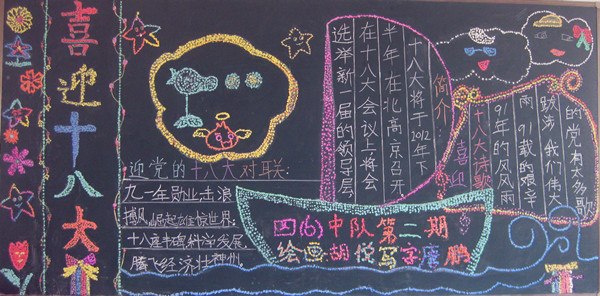 喜迎十八大
迎党的十八大对联:
九一年勋业击浪
搏风崛起雄惊世界;
十八喜丰碑科学发展,
腾飞经济壮神州
简介
十八大将于2012年下
半年在北京召开
在十八大会议上将会
选举新一届的领导层
喜迎
十八大诗歌
91年的风风雨
雨91载的艰辛
跋涉我们伟大
的党有太多歌
四(6)中队第二期
绘画胡悦写字鹏